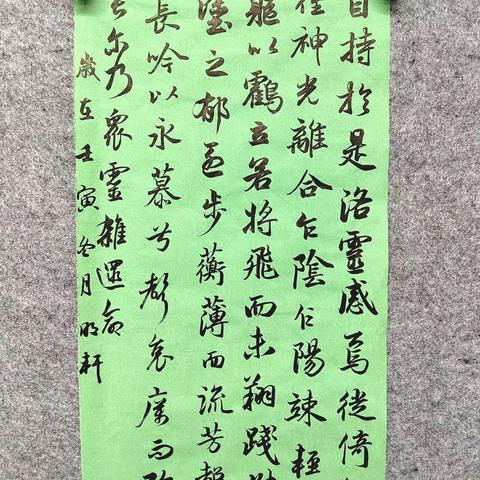 自持於是洛靈感焉徙倚
徨神光離合乍陰乍陽竦輕
軀以鶴立若將飛而未翔踐
塗之郁烈步蘅薄而流芳超
長吟以永慕兮聲哀厲而弥
長尔乃眾靈雜遝命
歲在壬寅冬月明軒